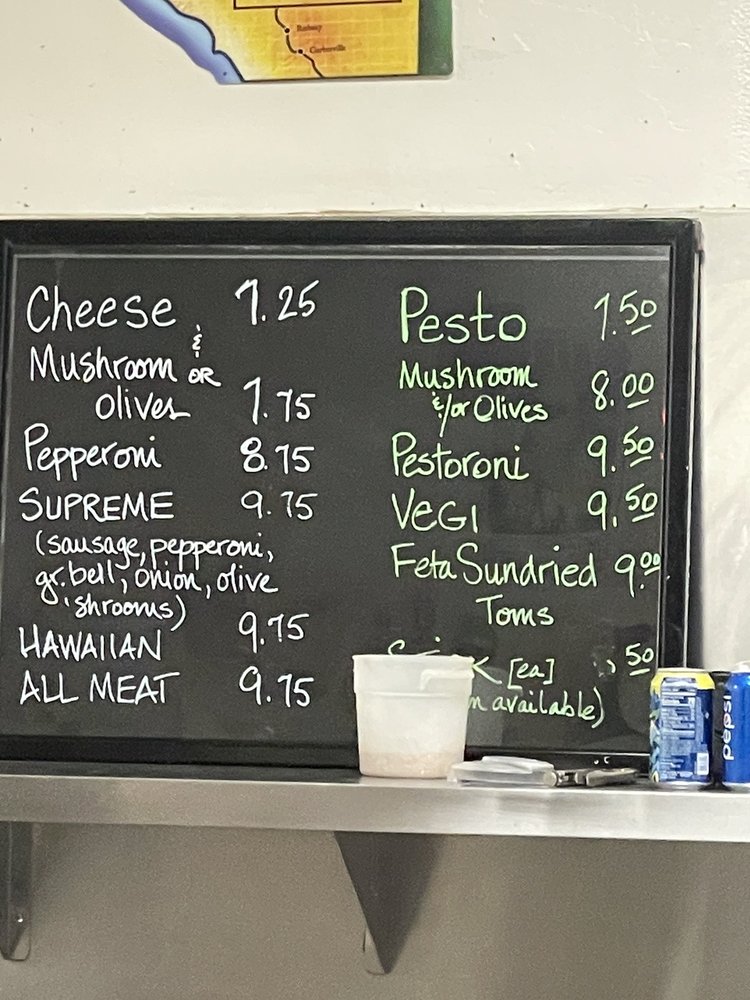 Garberville
Cheese 7.25
Mushroom & OR
olives 7.75
Pepperoni 8.75
SUPREME 9.75
(sausage, pepperoni,
gr. bell, onion, olive
'shrooms)
HAWAIIAN 9.75
ALL MEAT 9.75
Pesto 7.50
Mushroom
&/or Olives 8.00
Pestoroni 9.50
VEGI 9.50
Feta Sundried 9.00
Toms
[ea] .50
available)
pepsi